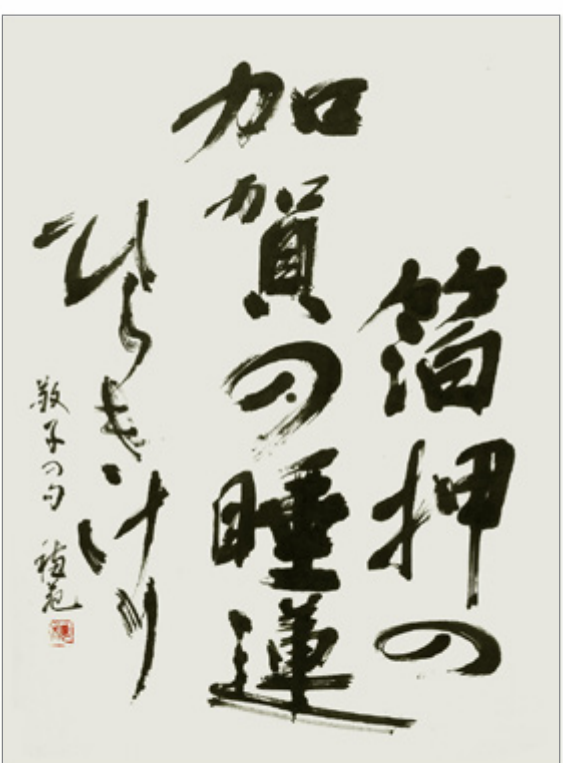 箔押の
加賀の睡蓮
ひらき けり
敬子の句